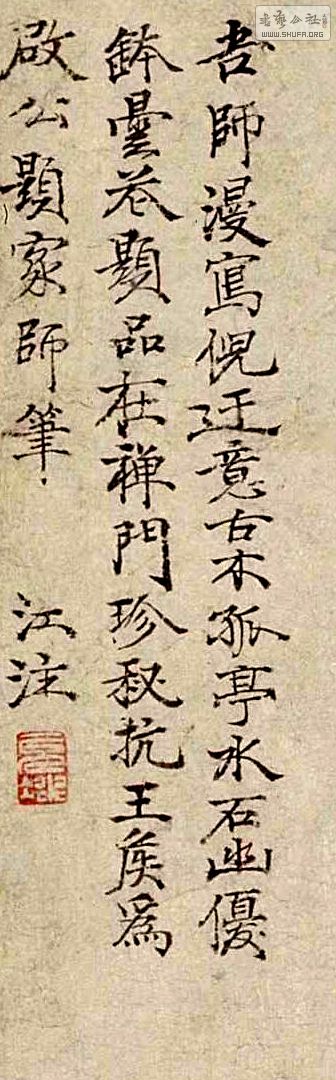 吾師漫寫倪迂意古木孤亭水石幽優
鉢曇花題品在禅門珍秘抗王矦為
啟公題家師筆
江注
書法公社
WWW.SHUFA.ORG